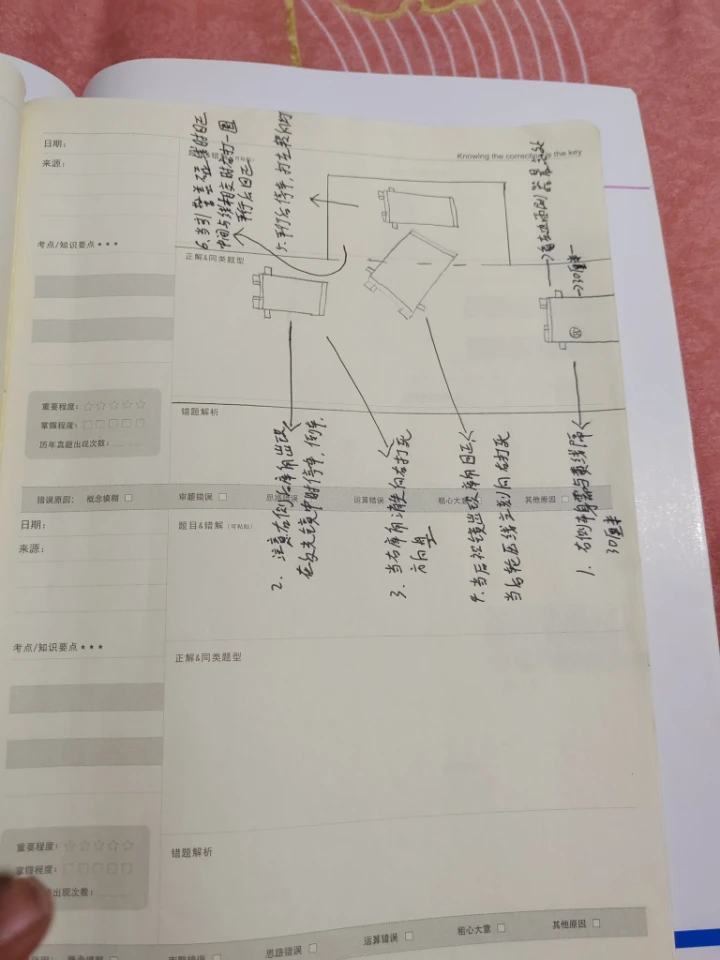 Knowing the correction is the key
日期：
来源：
考点/知识要点 ★★★
正解&同类题型
重要程度：☆☆☆☆☆
掌握程度：□□□□□
历年真题出现次数：
错题解析
错题原因： 概念模糊 □ 审题错误 □ 思路错误 运算错误 粗心大意 其他原因 □
1. 右侧车身需与黄线隔
30厘米
→30厘米
2. 注意右侧后库角出现
在反光镜中时停车，倒车.
3. 当右库角消失向右打死
方向盘
4. 当后视镜出现库角回正
当右轮压线立刻向右打死
5. 平行后停车，打左转向灯
6. 当引擎盖
中间与线相交时右打一圈
平行后回正
日期：
来源：
题目&错解（可粘贴）
考点/知识要点 ★★★
正解&同类题型
重要程度：☆☆☆☆☆
掌握程度：□□□□□
出现次数：
错题解析
思路错误 □ 运算错误 □ 粗心大意 □ 其他原因 □